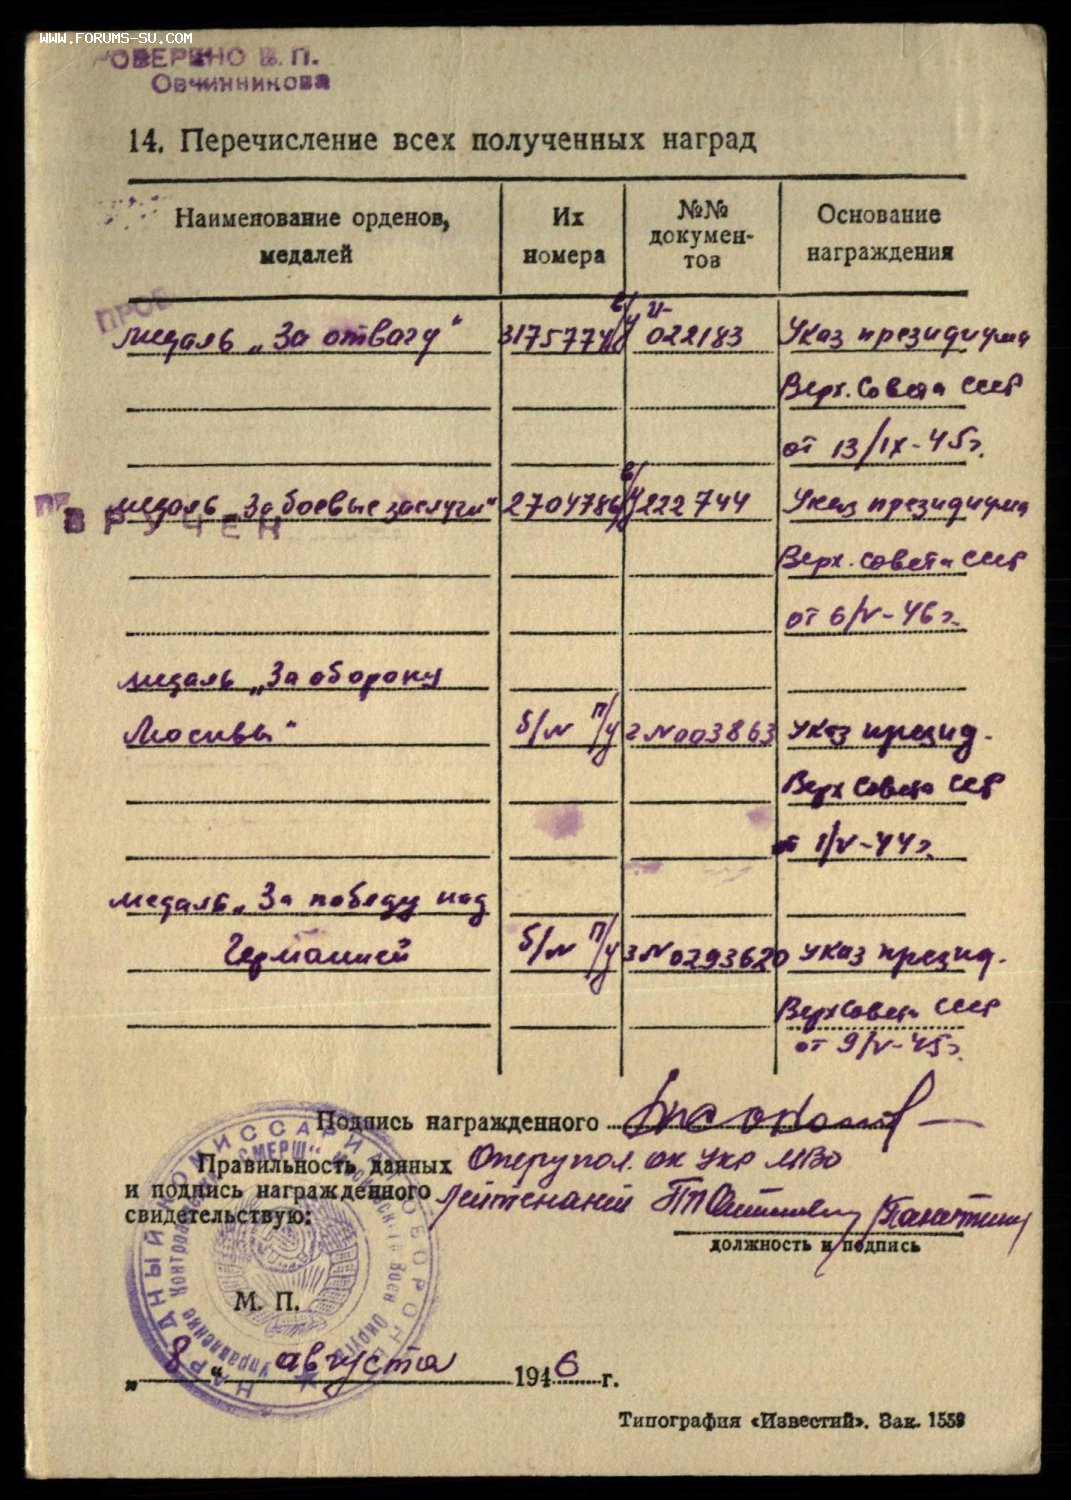 WWW.FORUMS-SU.COM
РОВЕРЕНО В. П.
Овчинникова
14. Перечисление всех полученных наград
Наименование орденов, медалей
Их номера
№№ докумен-тов
Основание награждения
ПРОВ
медаль „За отвагу" 3175774 б/у И-022183 Указ президиума
Верх. Совета СССР
от 13/IX-45г.
медаль „За боевые заслуги" 2704786 в/у 222744 Указ президиума
ВРУЧЕН
Верх. Совета СССР
от 6/V-46г.
медаль „За оборону
Москвы" б/N п/у г N003863 Указ презид.
Верх Совета СССР
от 1/V-44г.
медаль „За победу над
Германией б/N п/у З N0293620 Указ презид.
Верх Совета СССР
от 9/V-45г.
Подпись награжденного
Правильность данных Оперупол. ок Укр МВО
и подпись награжденного лейтенант
свидетельствую:
должность и подпись
НАРОДНЫЙ КОМИССАРИАТ ОБОРОНЫ
Управление Контрразведки „СМЕРШ" Московск-го Воен Округа
М. П.
„8" августа 1946 г.
Типография «Известий». Зак. 1559